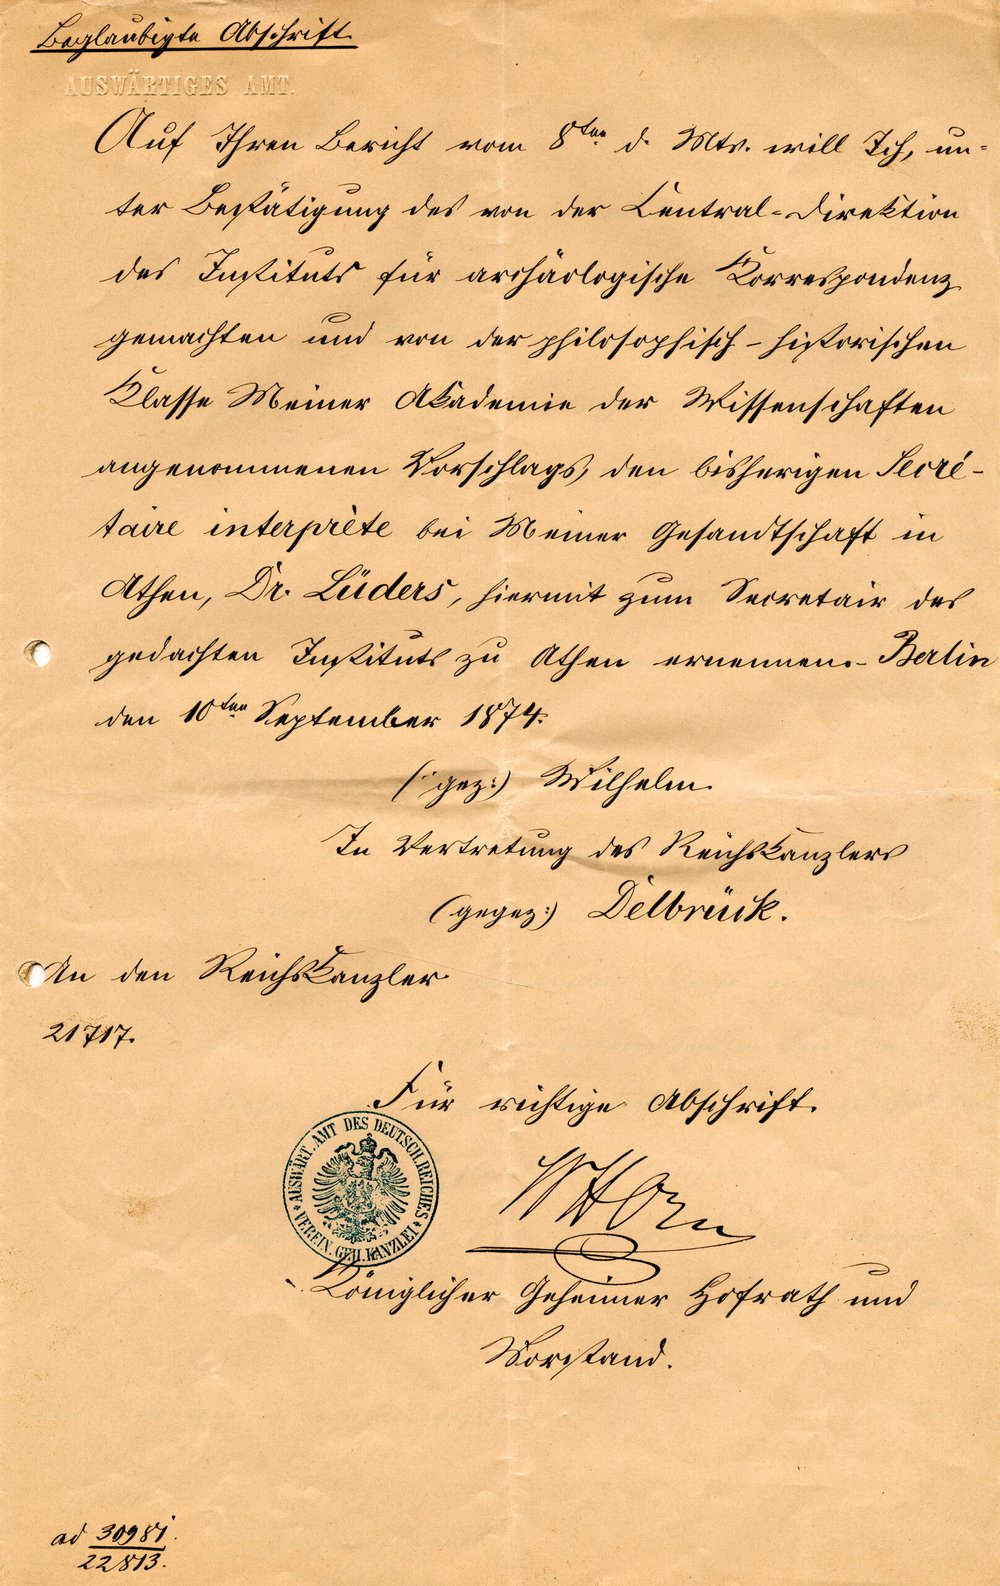 Beglaubigte Abschrift.
AUSWÄRTIGES AMT.
Auf Ihren Bericht vom 8ten d. Mts. will Ich, un-
ter Bestätigung des von der Central-Direktion
des Instituts für archäologische Korrespondenz
gemachten und von der philosophisch-historischen
Klasse Meiner Akademie der Wissenschaften
angenommenen Vorschlags, den bisherigen Secré-
taire interprète bei Meiner Gesandtschaft in
Athen, Dr. Lüders, hiermit zum Secretair des
gedachten Instituts zu Athen ernennen.- Berlin
den 10ten September 1874.
(gez:) Wilhelm.
In Vertretung des Reichskanzlers
(gegez:) Delbrück.
An den Reichskanzler
21717.
Für richtige Abschrift.
AUSWÄRT. AMT DES DEUTSCH. REICHES
VEREIN. GEH. KANZLEI
WHorn
Königlicher Geheimer Hofrath und
Vorstand.
ad 30981.
22813.